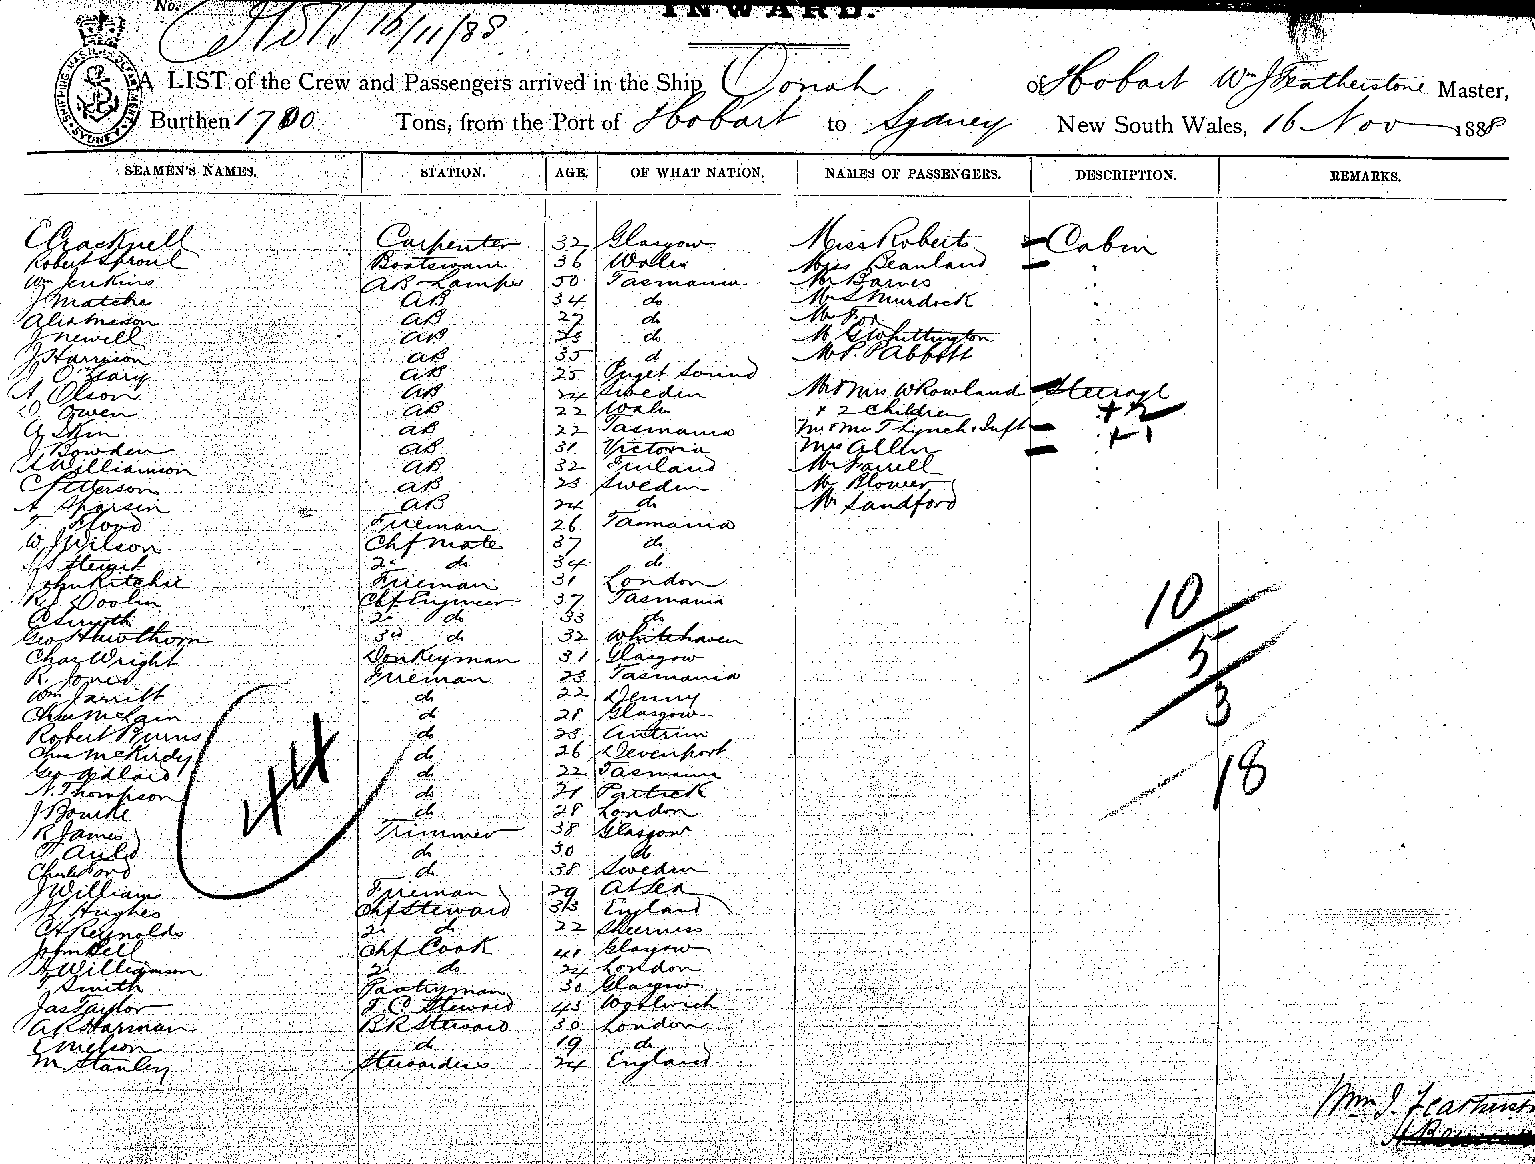 No.
INWARD.
16/11/88
A LIST of the Crew and Passengers arrived in the Ship Oonah of Hobart Wm J Featherstone Master,
Burthen 1780 Tons, from the Port of Hobart to Sydney New South Wales, 16 Nov 1888
SEAMEN'S NAMES. STATION. AGE. OF WHAT NATION. NAMES OF PASSENGERS. DESCRIPTION. REMARKS.
E Cracknell Carpenter 32 Glasgow Miss Roberts Cabin
Robert Sproul Boatswain 36 Wales Miss Beanland
Wm Jenkins AB Lamps 50 Tasmania Mr Barnes
J AB 34 do Mr S Murdock
AB 27 do Mr Fox
J Newell AB 23 do Mr G Whittington
J Harrison AB 35 d Mr P. P Abbott
J O'Leary AB 25 Puget Sound
A Olson AB 24 Sweden Mr & Mrs W Rowland Steerage
D Owen AB 22 Wales + 2 Children + 2
AB 22 Tasmania Mr & Mrs T Lynch & Inft + 1
J Bowden AB 31 Victoria Mrs Allen
A Williamson AB 32 Finland Mr Farrell
C Petterson AB 23 Sweden Mr Blower
AB 24 do Mr Sandford
T. Flood Fireman 26 Tasmania
W J Wilson Chf Mate 37 do
2 do 34 do
John Ritchie Fireman 31 London
Chf Engineer 37 Tasmania
C Smyth 2 do 33 do
Geo Hawthorn 3rd do 32 Whitehaven
Chas Wright Donkeyman 31 Glasgow
R. Jones Fireman 23 Tasmania
Wm Jarritt d 22 Denny
Chas McLain d 28 Glasgow
Robert Burns d 23 Antrim
Chas McKirdy d 26 Devenport
Geo d 22 Tasmania
N. Thompson d 21 Partick
J Bourke d 28 London
R James Trimmer 38 Glasgow
Auld do 30 do
Charles Ford d 38 Sweden
J William Fireman 29 At Sea
J Hughes Chf Steward 33 England
C H Reynolds 2 do 22 Sheerness
John Bell Chf Cook 41 Glasgow
A Williamson 2 do 24 London
T Smith Pantryman 30 Glasgow
Jas Taylor F. C. Steward 43 Woolwich
A R Harman B R Steward 30 London
E Nelson do 19 do
M Stanley Stewardess 24 England
44
10
5
3
18
Wm J. Featherst